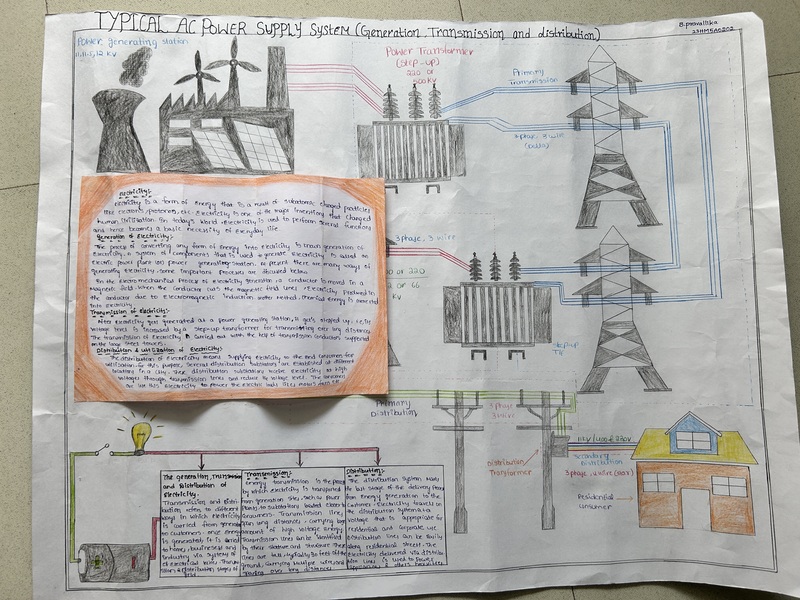 TYPICAL AC POWER SUPPLY SYSTEM (Generation, Transmission and distribution)
B. pravallika
Power generating station
11, 11.5, 12 KV
Power Transformer
(step-up)
220 or
Primary
Transmission
3 phase, 3 wire
3 phase, 3 wire
or 220
or 66
KV
Step up
Primary
Distribution
3 phase
3 wire
Distribution
Transformer
Secondary
Distribution
Residential
consumer
Electricity:
Electricity is a form of Energy that is a result of subatomic charged particles
like electrons, protons, etc. Electricity is one of the major invention that changed
human civilisation. In today's world electricity is used to perform several functions
and hence becomes a basic necessity of everyday life.
Generation of Electricity:
The process of converting any form of energy into electricity is known generation of
Electricity. A system of components that is used to generate electricity is called an
electric power plant (or) power generating station. At present there are many ways of
generating electricity, some important processes are discussed below.
In the electromechanical process of electricity generation, a conductor is moved in a
magnetic field when the conductor cuts the magnetic field lines, electricity produced in
the conductor due to electromagnetic induction. another method, chemical energy is converted
into electricity.
Transmission of electricity:
After electricity get generated at a power generating station, it get's stepped up, i.e, its
voltage level is increased by a step-up transformer for transmitting over long distance.
The transmission of Electricity is carried out with the help of transmission conductors supported
on the large steel towers.
Distribution & utilization of Electricity:
The distribution of electricity means supplying electricity to the end consumer for
utilization. for this purpose, several distribution substations are established at different
locating in a city. These distribution substation receive electricity at high
voltages through transmission lines and reduce its voltage level. The consumers
The generation, Transmission
and distribution of
Electricity.
Transmission and distri-
bution refers to different
ways in which electricity
is carried from generators
to customers. once energy
is generated, it is aimed
to homes, businesses and
industry via system of
electrical wire.
Transmission:
energy transmission is the process
by which electricity is transported
from generation sites, such as power
plants, to substations located closer to
consumers. Transmission lines
run long distances, carrying large
amount of high voltage energy.
Transmission lines can be identified
by their stature and structure. These
lines are tall, typically 50 feet off the
ground, carrying multiple wires and
Distribution:
The distribution system marks
the last stage of the delivery process
from Energy generation to the
customer. Electricity travels on
the distribution system at a
voltage that is appropriate for
residential and corporate use.
Distribution lines can be easily
along residential street. The
electricity delivered via distribu
tion lines is used to power
appliances & others